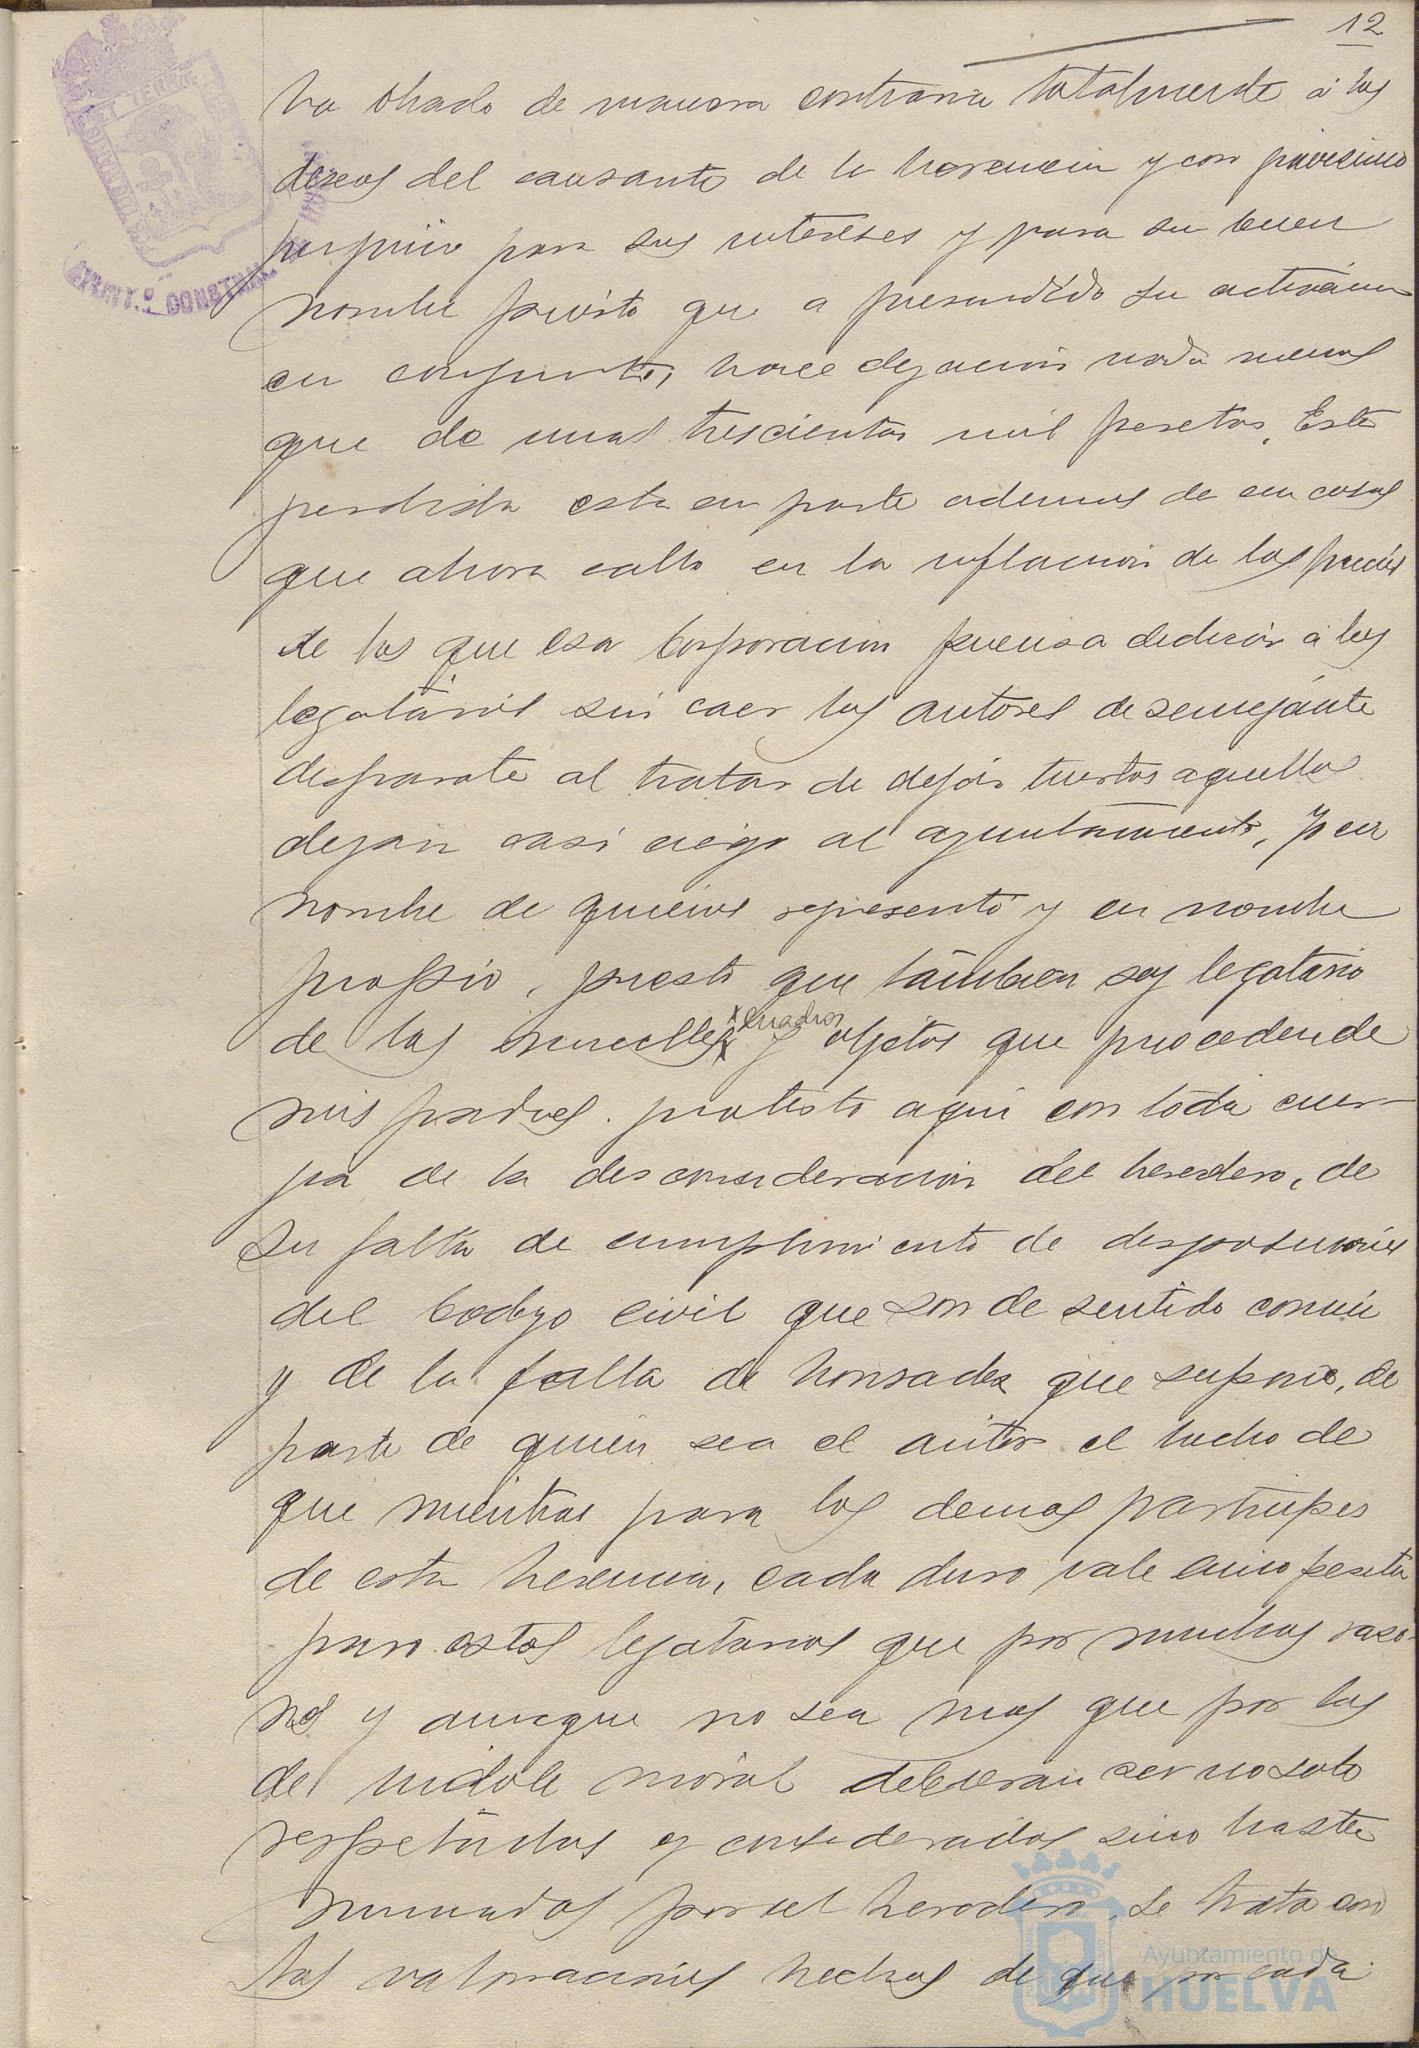 12
ha obrado de manera contraria totalmente á los
deseos del causante de la herencia y con gravisimo
perjuicio para sus intereses y para su buen
nombre puesto que a prescindido su actuacion
en conjunto, hace dejacion nada menos
que de unas trescientas mil pesetas. Esta
perdida esta en parte ademas de en cosas
que ahora callo en la inflacion de los precios
de los que esa Corporacion piensa dedicar á los
legatarios sin caer los autores de semejante
disparate al tratar de dejar tuertos aquellos
dejan casi ciego al ayuntamiento, y en
nombre de quienes represento y en nombre
propio, puesto que tambien soy legatario
de los muebles cuadros y objetos que proceden de
mis padres. protesto aqui con toda ener-
gia de la desconsideracion del heredero, de
su falta de cumplimiento de disposiciones
del Codigo civil que son de sentido comun
y de la falta de honradez que supone, de
parte de quien sea el autor el hecho de
que mientras para los demas participes
de esta herencia, cada duro vale cinco pesetas
para estos legatarios que por muchas razo-
nes y aunque no sea mas que por las
de indole moral debieran ser no solo
respetados y considerados sino hasta
mimados por el heredero, se trata con
las valoraciones hechas de que por cada
AYUNT.º CONSTNAL
Ayuntamiento de
HUELVA